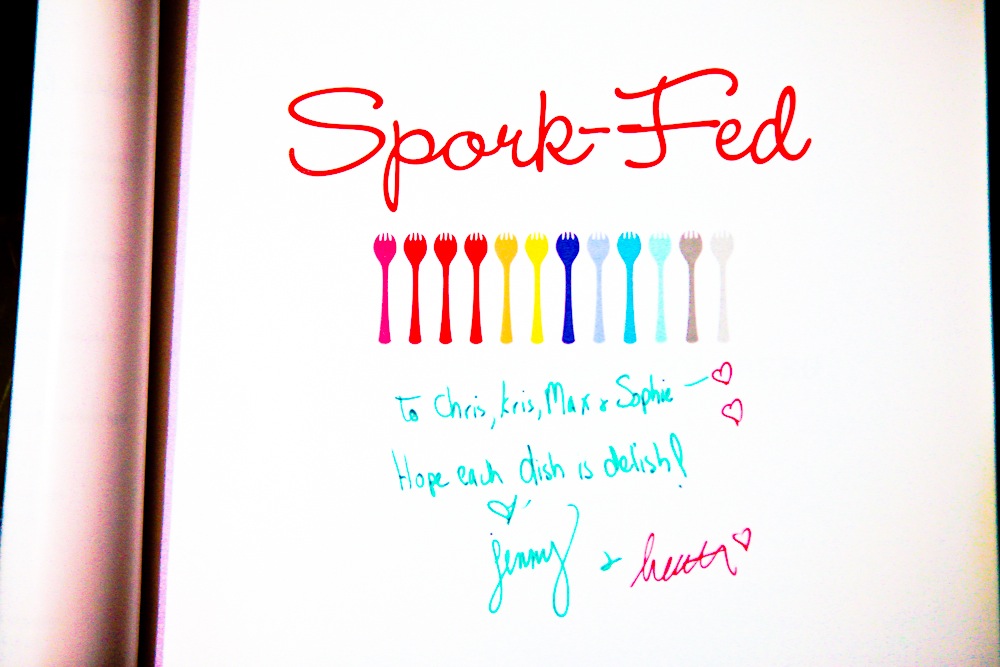 Spork-Fed
To Chris, Kris, Max & Sophie —
Hope each dish is delish!
jenny & heather